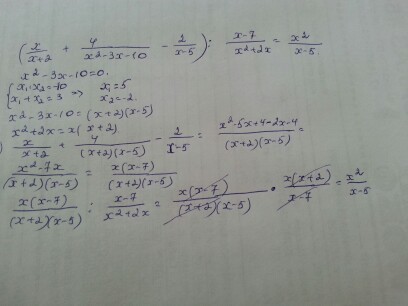 (x/(x+2) + 4/(x²-3x-10) - 2/(x-5)) : (x-7)/(x²+2x) = x²/(x-5).
x²-3x-10=0.
{x₁·x₂=-10 x₁+x₂=3 => x₁=5 x₂=-2.
x²-3x-10=(x+2)(x-5)
x²+2x=x(x+2).
) x/(x+2) + 4/((x+2)(x-5)) - 2/(x-5) = (x²-5x+4-2x-4)/((x+2)(x-5)) =
(x²-7x)/((x+2)(x-5)) = x(x-7)/((x+2)(x-5))
x(x-7)/((x+2)(x-5)) : (x-7)/(x²+2x) = x(x-7)/((x+2)(x-5)) · x(x+2)/(x-7) = x²/(x-5)